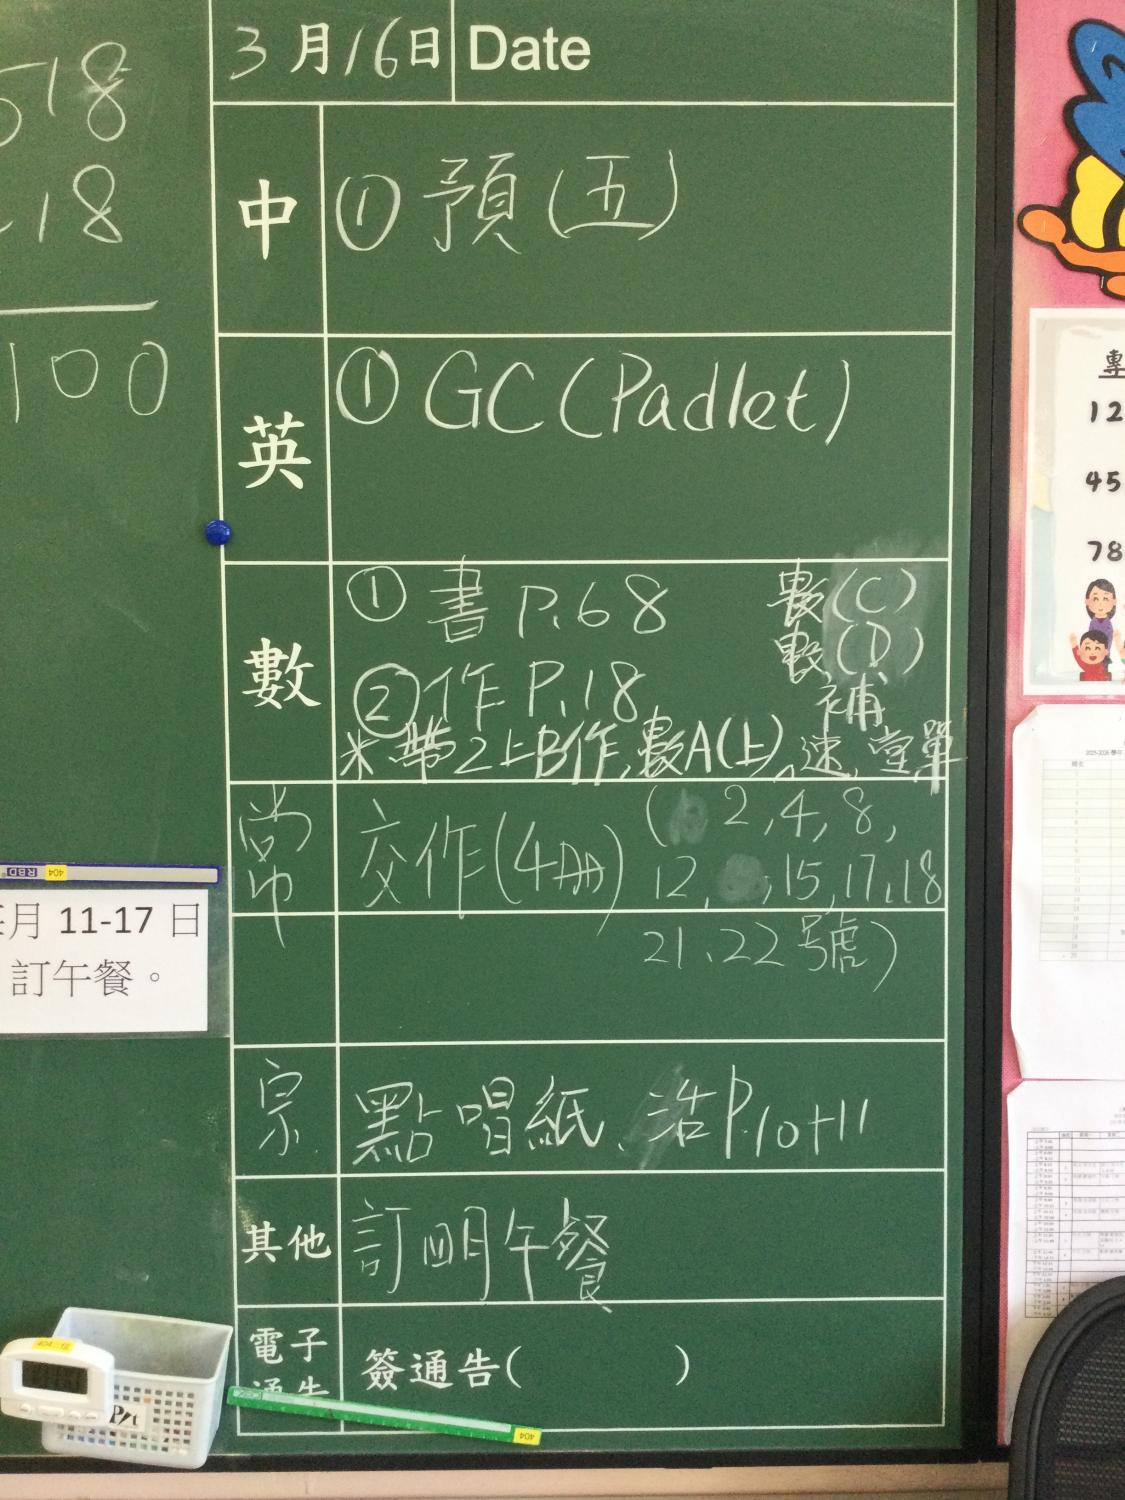 3月16日 Date
518
18
100
中 ①預(五)
英 ①GC(Padlet)
數 ①書 P.68 數(C)
數(D)
②作 P.18 補
米帶2上B作,數A(上),速,堂單
常 交作(4冊)( 2,4,8,
12, ,15,17,18
21、22號)
宗 點唱紙、活P.10+11
其他 訂明午餐
電子
通告 簽通告( )
月 11-17 日
訂午餐。
RBD 404
404
404
12
45
78